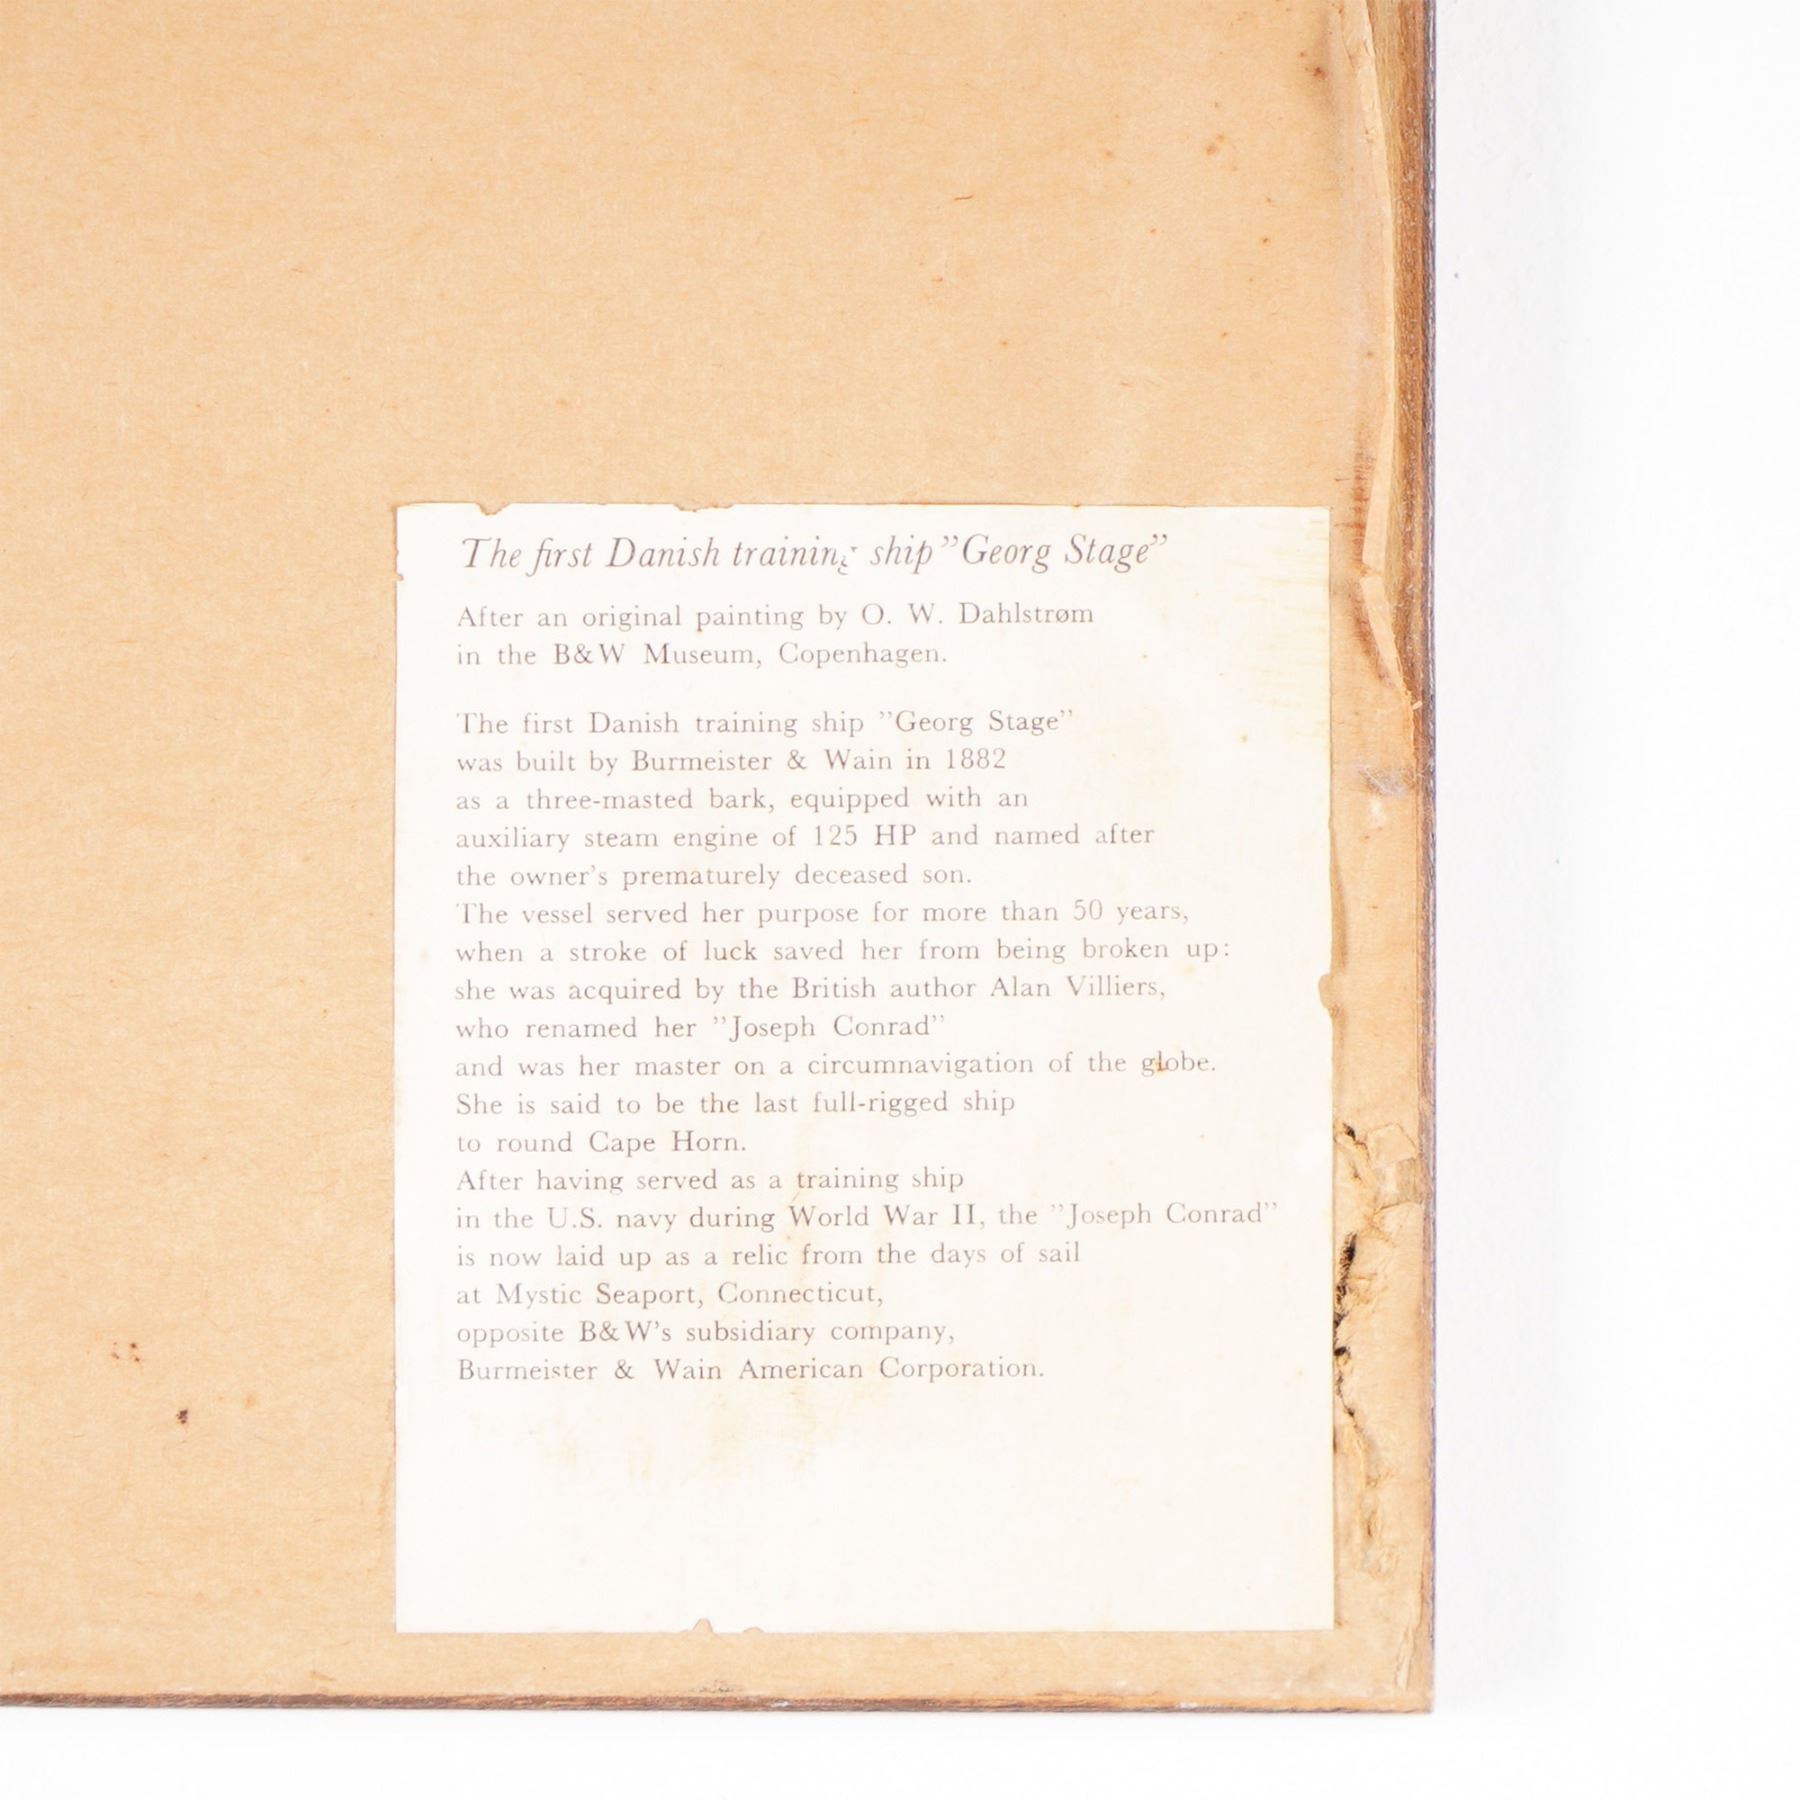 The first Danish training ship ”Georg Stage”
After an original painting by O. W. Dahlstrøm
in the B&W Museum, Copenhagen.
The first Danish training ship ”Georg Stage”
was built by Burmeister & Wain in 1882
as a three-masted bark, equipped with an
auxiliary steam engine of 125 HP and named after
the owner’s prematurely deceased son.
The vessel served her purpose for more than 50 years,
when a stroke of luck saved her from being broken up:
she was acquired by the British author Alan Villiers,
who renamed her ”Joseph Conrad”
and was her master on a circumnavigation of the globe.
She is said to be the last full-rigged ship
to round Cape Horn.
After having served as a training ship
in the U.S. navy during World War II, the ”Joseph Conrad”
is now laid up as a relic from the days of sail
at Mystic Seaport, Connecticut,
opposite B&W’s subsidiary company,
Burmeister & Wain American Corporation.